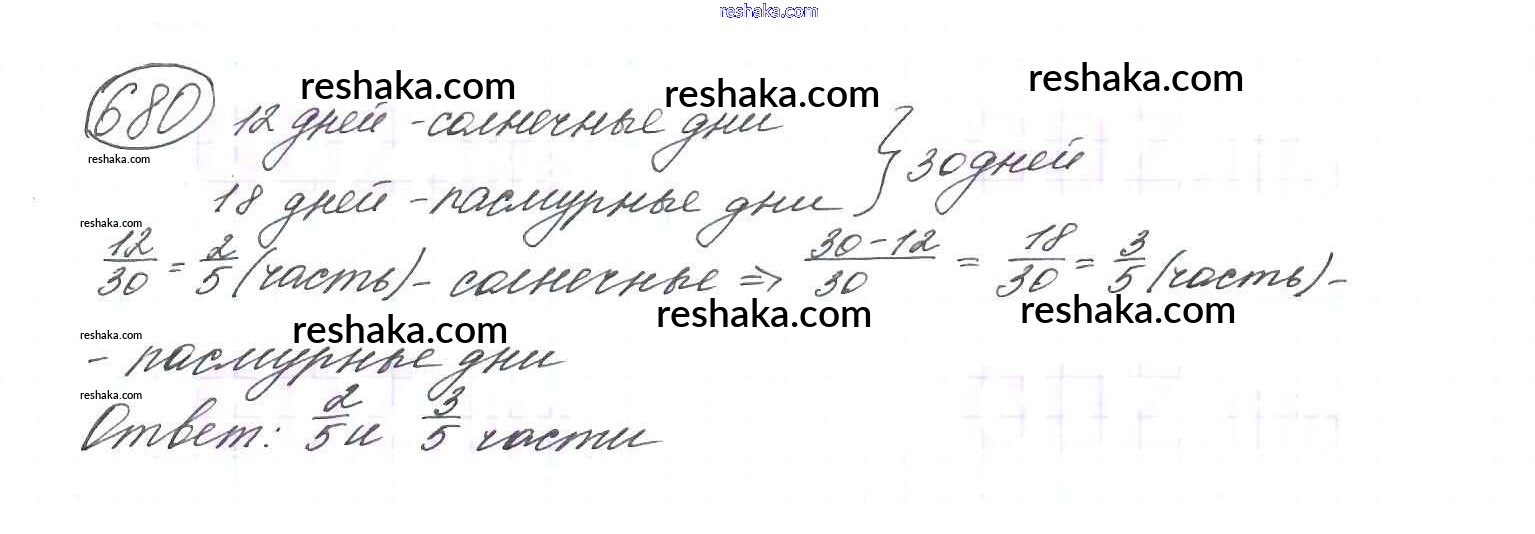 reshaka.com
reshaka.com reshaka.com reshaka.com
680 12 дней - солнечные дни
reshaka.com
} 30 дней
18 дней - пасмурные дни
reshaka.com
12/30 = 2/5 (часть) - солнечные => (30-12)/30 = 18/30 = 3/5 (часть) -
reshaka.com reshaka.com reshaka.com
reshaka.com
- пасмурные дни
reshaka.com
Ответ: 2/5 и 3/5 части